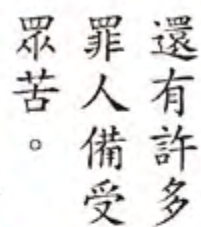 還有許多
罪人備受
眾苦。